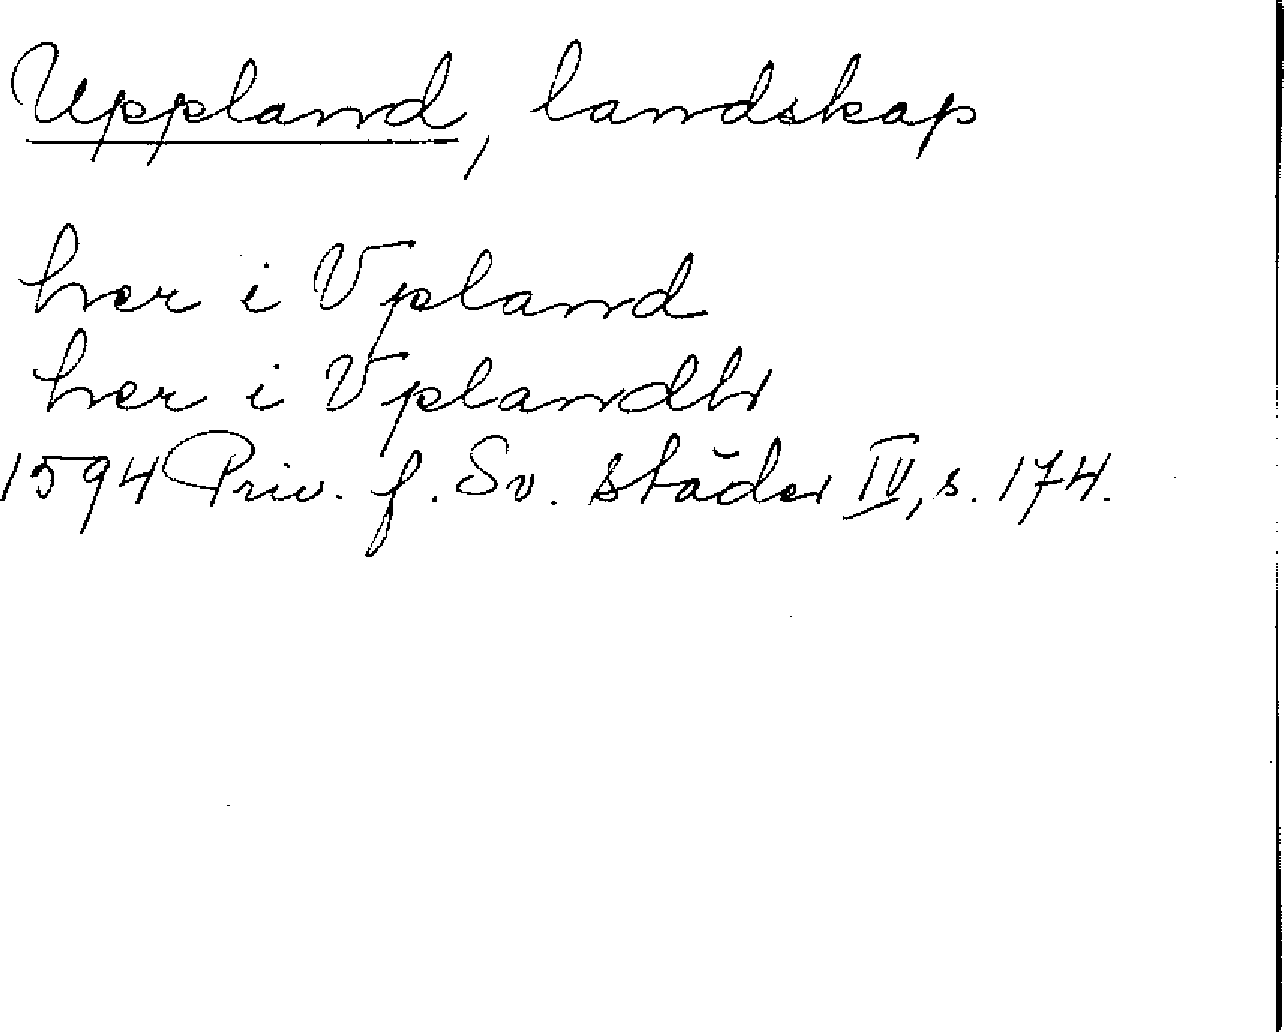 Uppland, landskap
her i Vpland
her i Vplandh
1594 Priv. f. Sv. städer IV, s. 174.